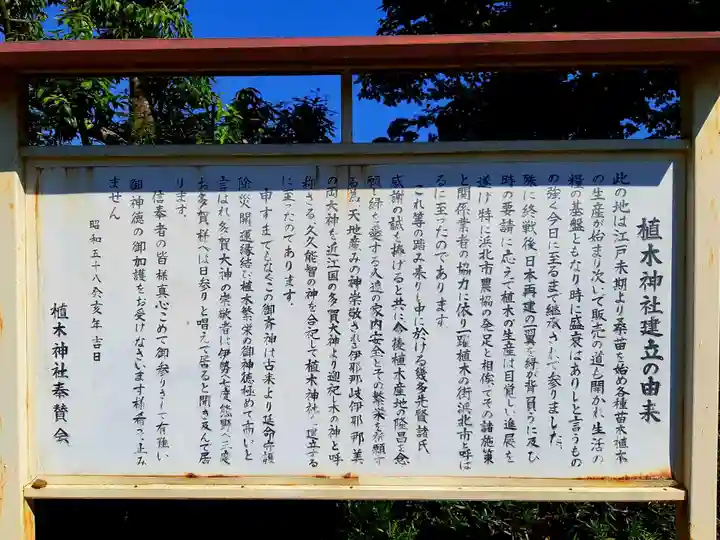 植木神社建立の由来
此の地は江戸末期より桑苗を始め各種苗木植木
の生産が始まり次いで販売の道も開かれ生活の
糧の基盤ともなり時に盛衰はありしと言うもの
の強く今日に至るまで継承されて参りました。
殊に終戦後日本再建の一翼を緑が背負うに及び
時の要請に応えて植木の生産は目覚しい進展を
遂げ特に浜北市農協の発足と相俟てその諸施策
と関係業者の協力に依り一躍植木の街浜北市と呼ば
るに至ったのであります。
これ等の踏み来りし中に於ける幾多先賢諸氏
感謝の誠を捧げると共に今後植木産地の隆昌を念
願し緑を愛する人達の家内安全とその繁栄を祈願す
る為天地産みの神崇敬される伊耶那岐伊耶那美
の両大神を近江国の多賀大神より迎祀し木の神と呼
称さる、久久能智の神を合祀して植木神社を建立する
に至ったのであります。
申すまでもなくこの御斉神は古来より延命守護
除災開運縁結び植木繁栄の御神徳極めて高いと
言はれ多賀大神の崇敬者は伊勢へ七度熊野へ三度
お多賀様へは日参りと唱えて居ると聞き及んで居
ります。
信奉者の皆様真心こめて御参りされて有難い
御神徳の御加護をお受けなさいます様希って止み
ません
昭和五十八癸亥年吉日
植木神社奉賛会